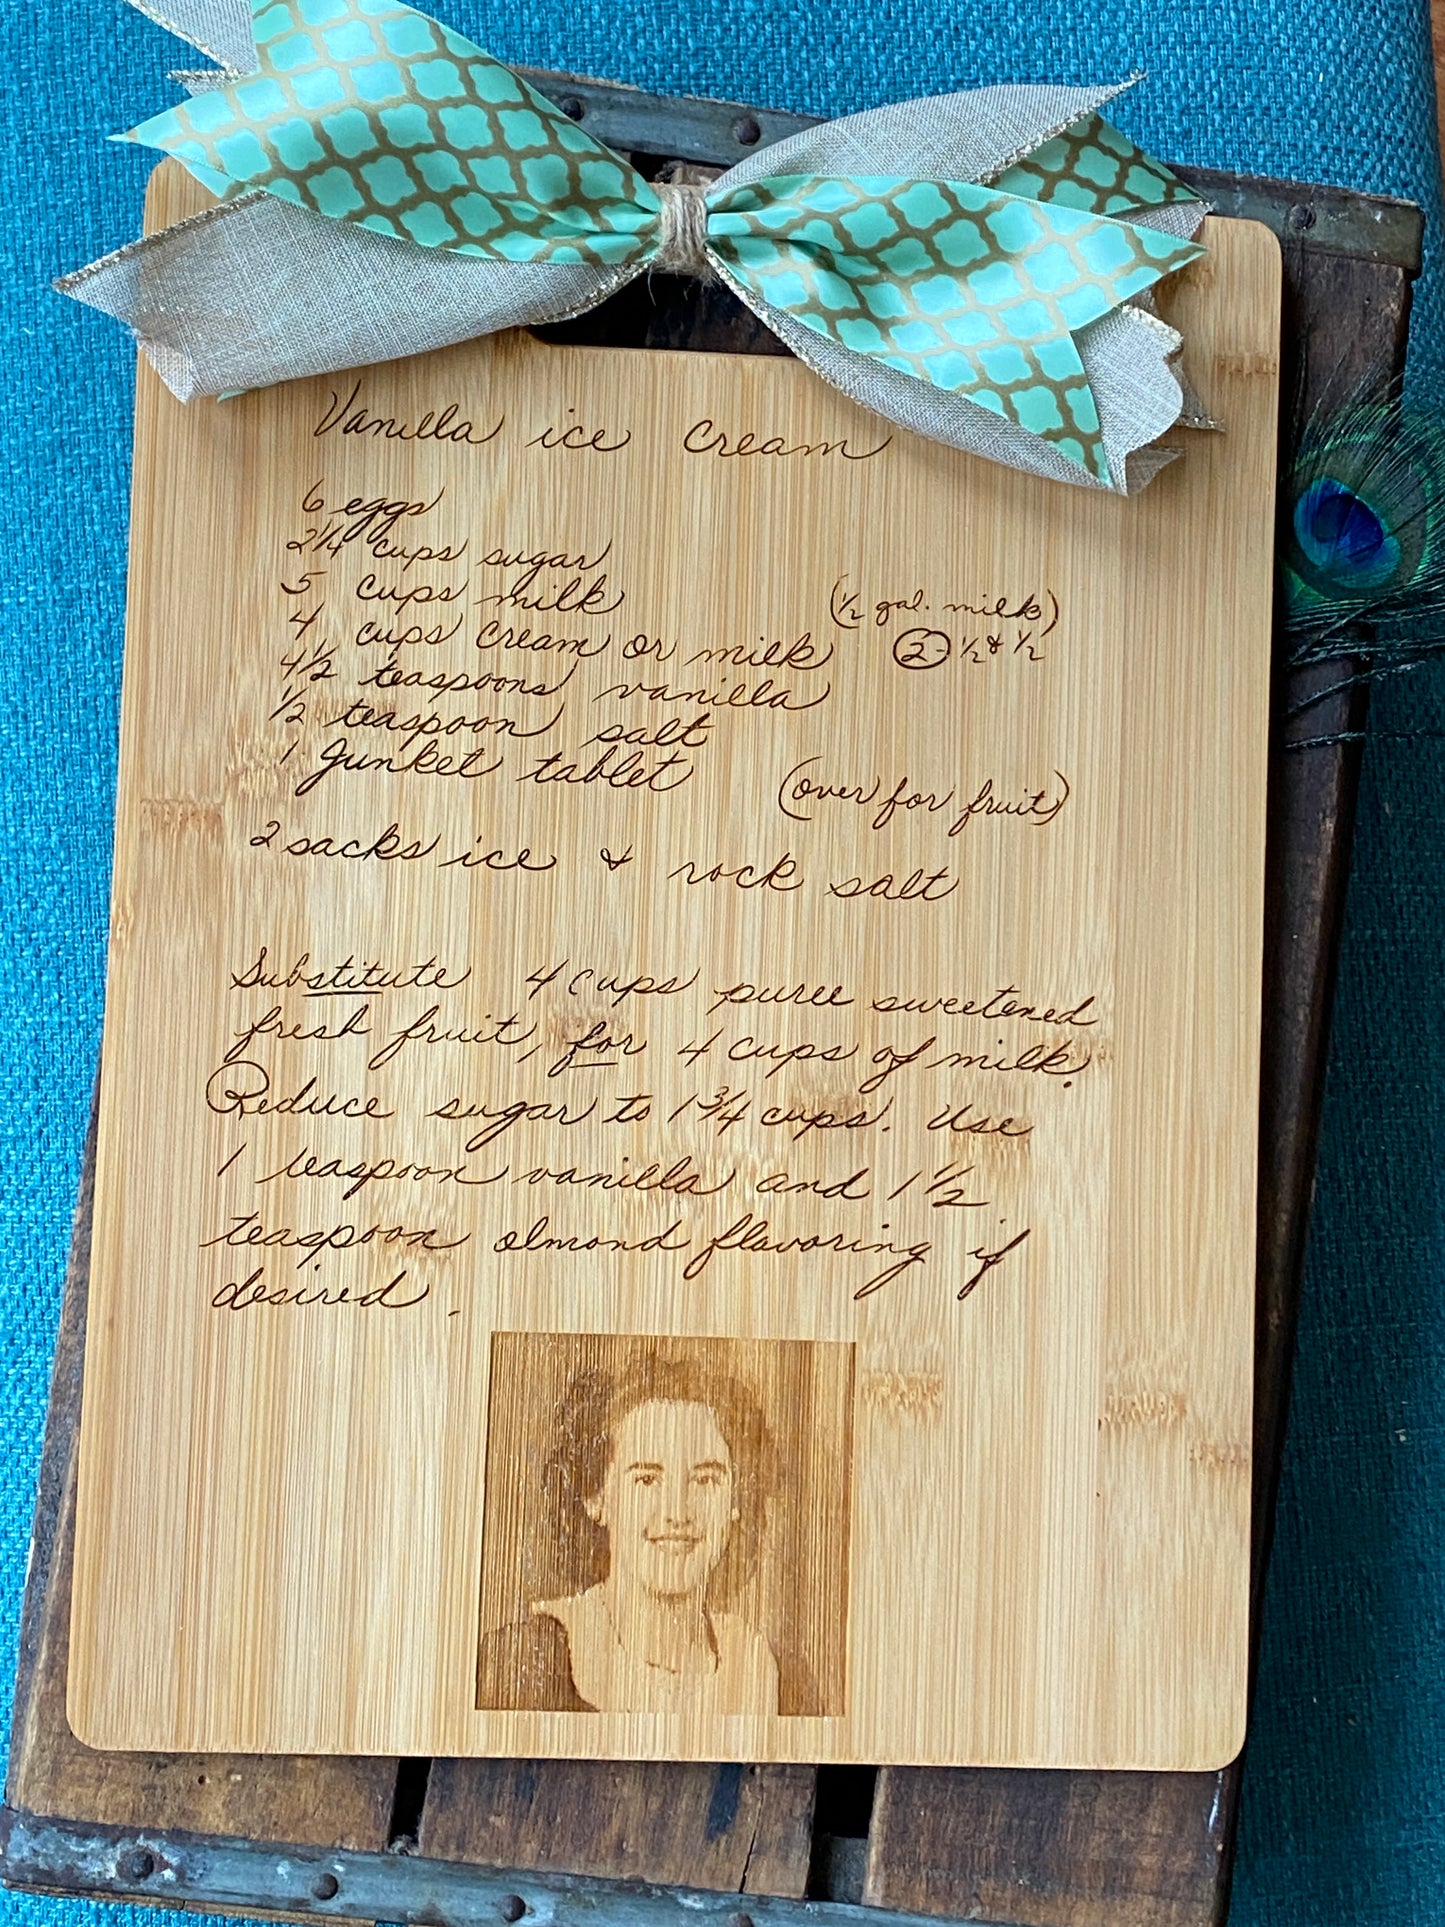 Vanilla ice cream
6 eggs
2 1/4 cups sugar
5 cups milk (1/2 gal. milk)
4 cups cream or milk 2 - 1/2 & 1/2
4 1/2 teaspoons vanilla
1/2 teaspoon salt
1 Junket tablet (over for fruit)
2 sacks ice & rock salt
Substitute 4 cups puree sweetened
fresh fruit, for 4 cups of milk.
Reduce sugar to 1 3/4 cups. Use
1 teaspoon vanilla and 1 1/2
teaspoon almond flavoring if
desired.